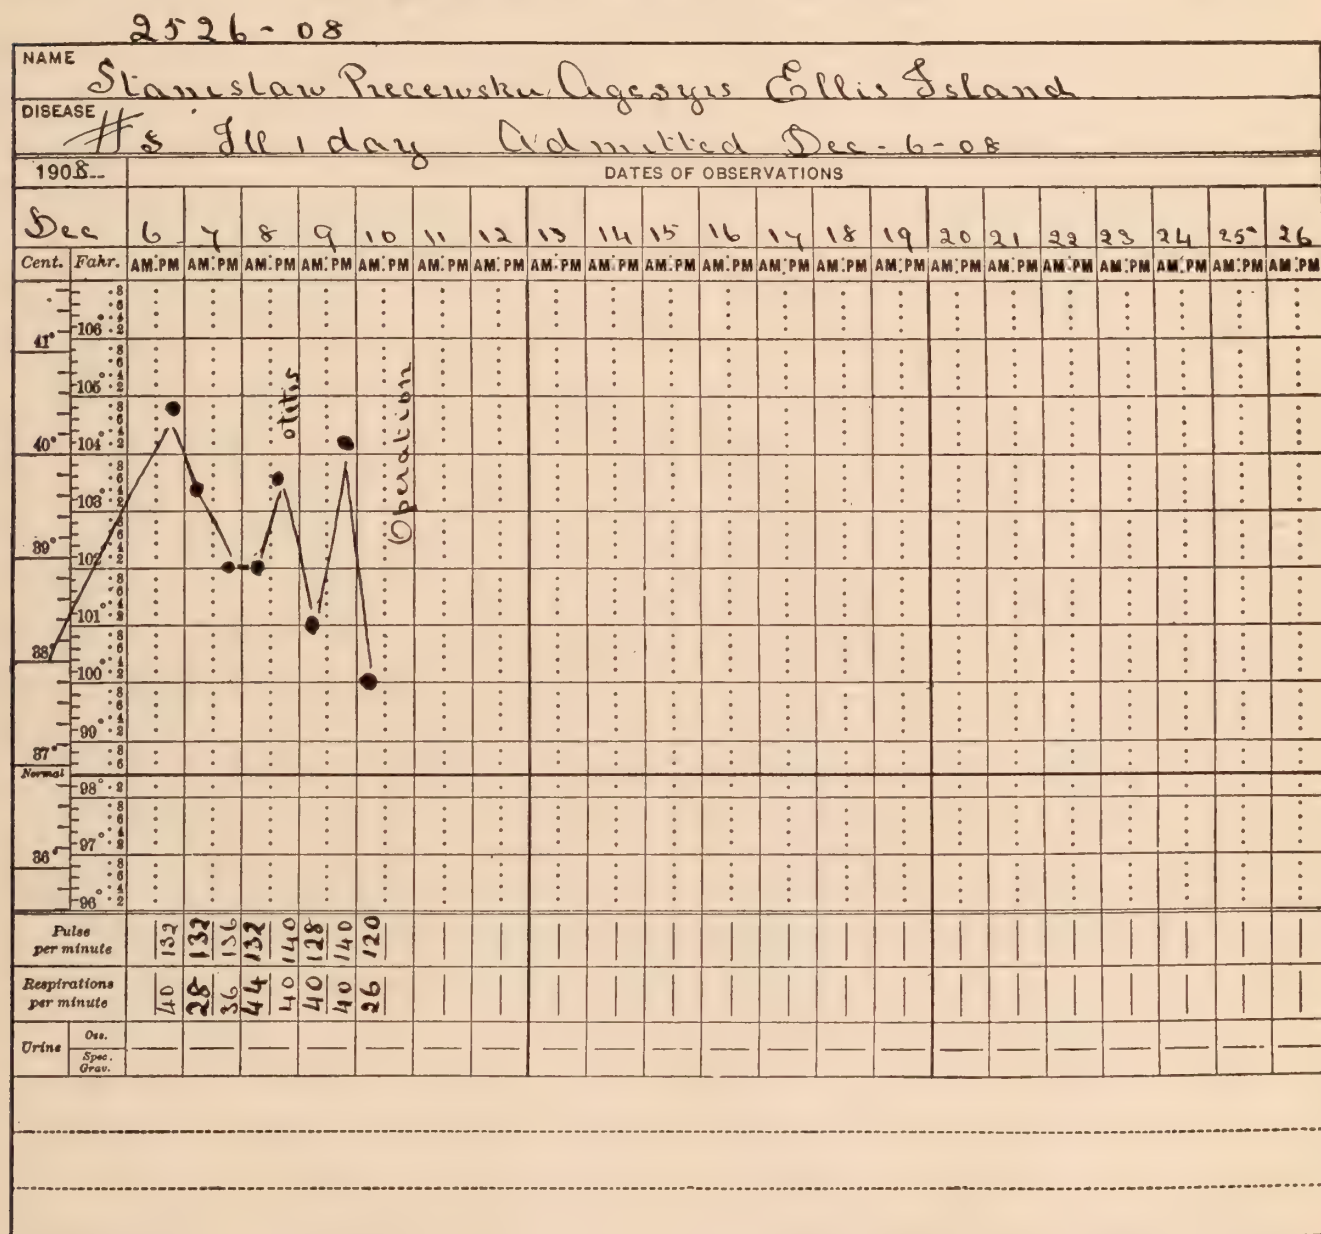 2526-08
NAME Stanislaw Precewsku Age 5 yrs Ellis Island
DISEASE #5 Ill 1 day Admitted Dec-6-08
1908 DATES OF OBSERVATIONS
Dec 6 7 8 9 10 11 12 13 14 15 16 17 18 19 20 21 22 23 24 25 26
Cent. Fahr. AM PM AM PM AM PM AM PM AM PM AM PM AM PM AM PM AM PM AM PM AM PM AM PM AM PM AM PM AM PM AM PM AM PM AM PM AM PM AM PM AM PM
8
6
4
106° 2
41°
8
6
4
105° 2
otitis
Operation
8
6
4
40° 104° 2
8
6
4
103° 2
8
6
4
39° 102° 2
8
6
4
101° 2
8
6
38° 4
100° 2
8
6
4
99° 2
37° 8
6
Normal
98° 2
8
6
4
97° 2
36°
8
6
4
96° 2
Pulse per minute 132 132 136 132 140 128 140 120
Respirations per minute 40 28 36 44 40 40 40 26
Urine Ozs.
Spec. Grav.